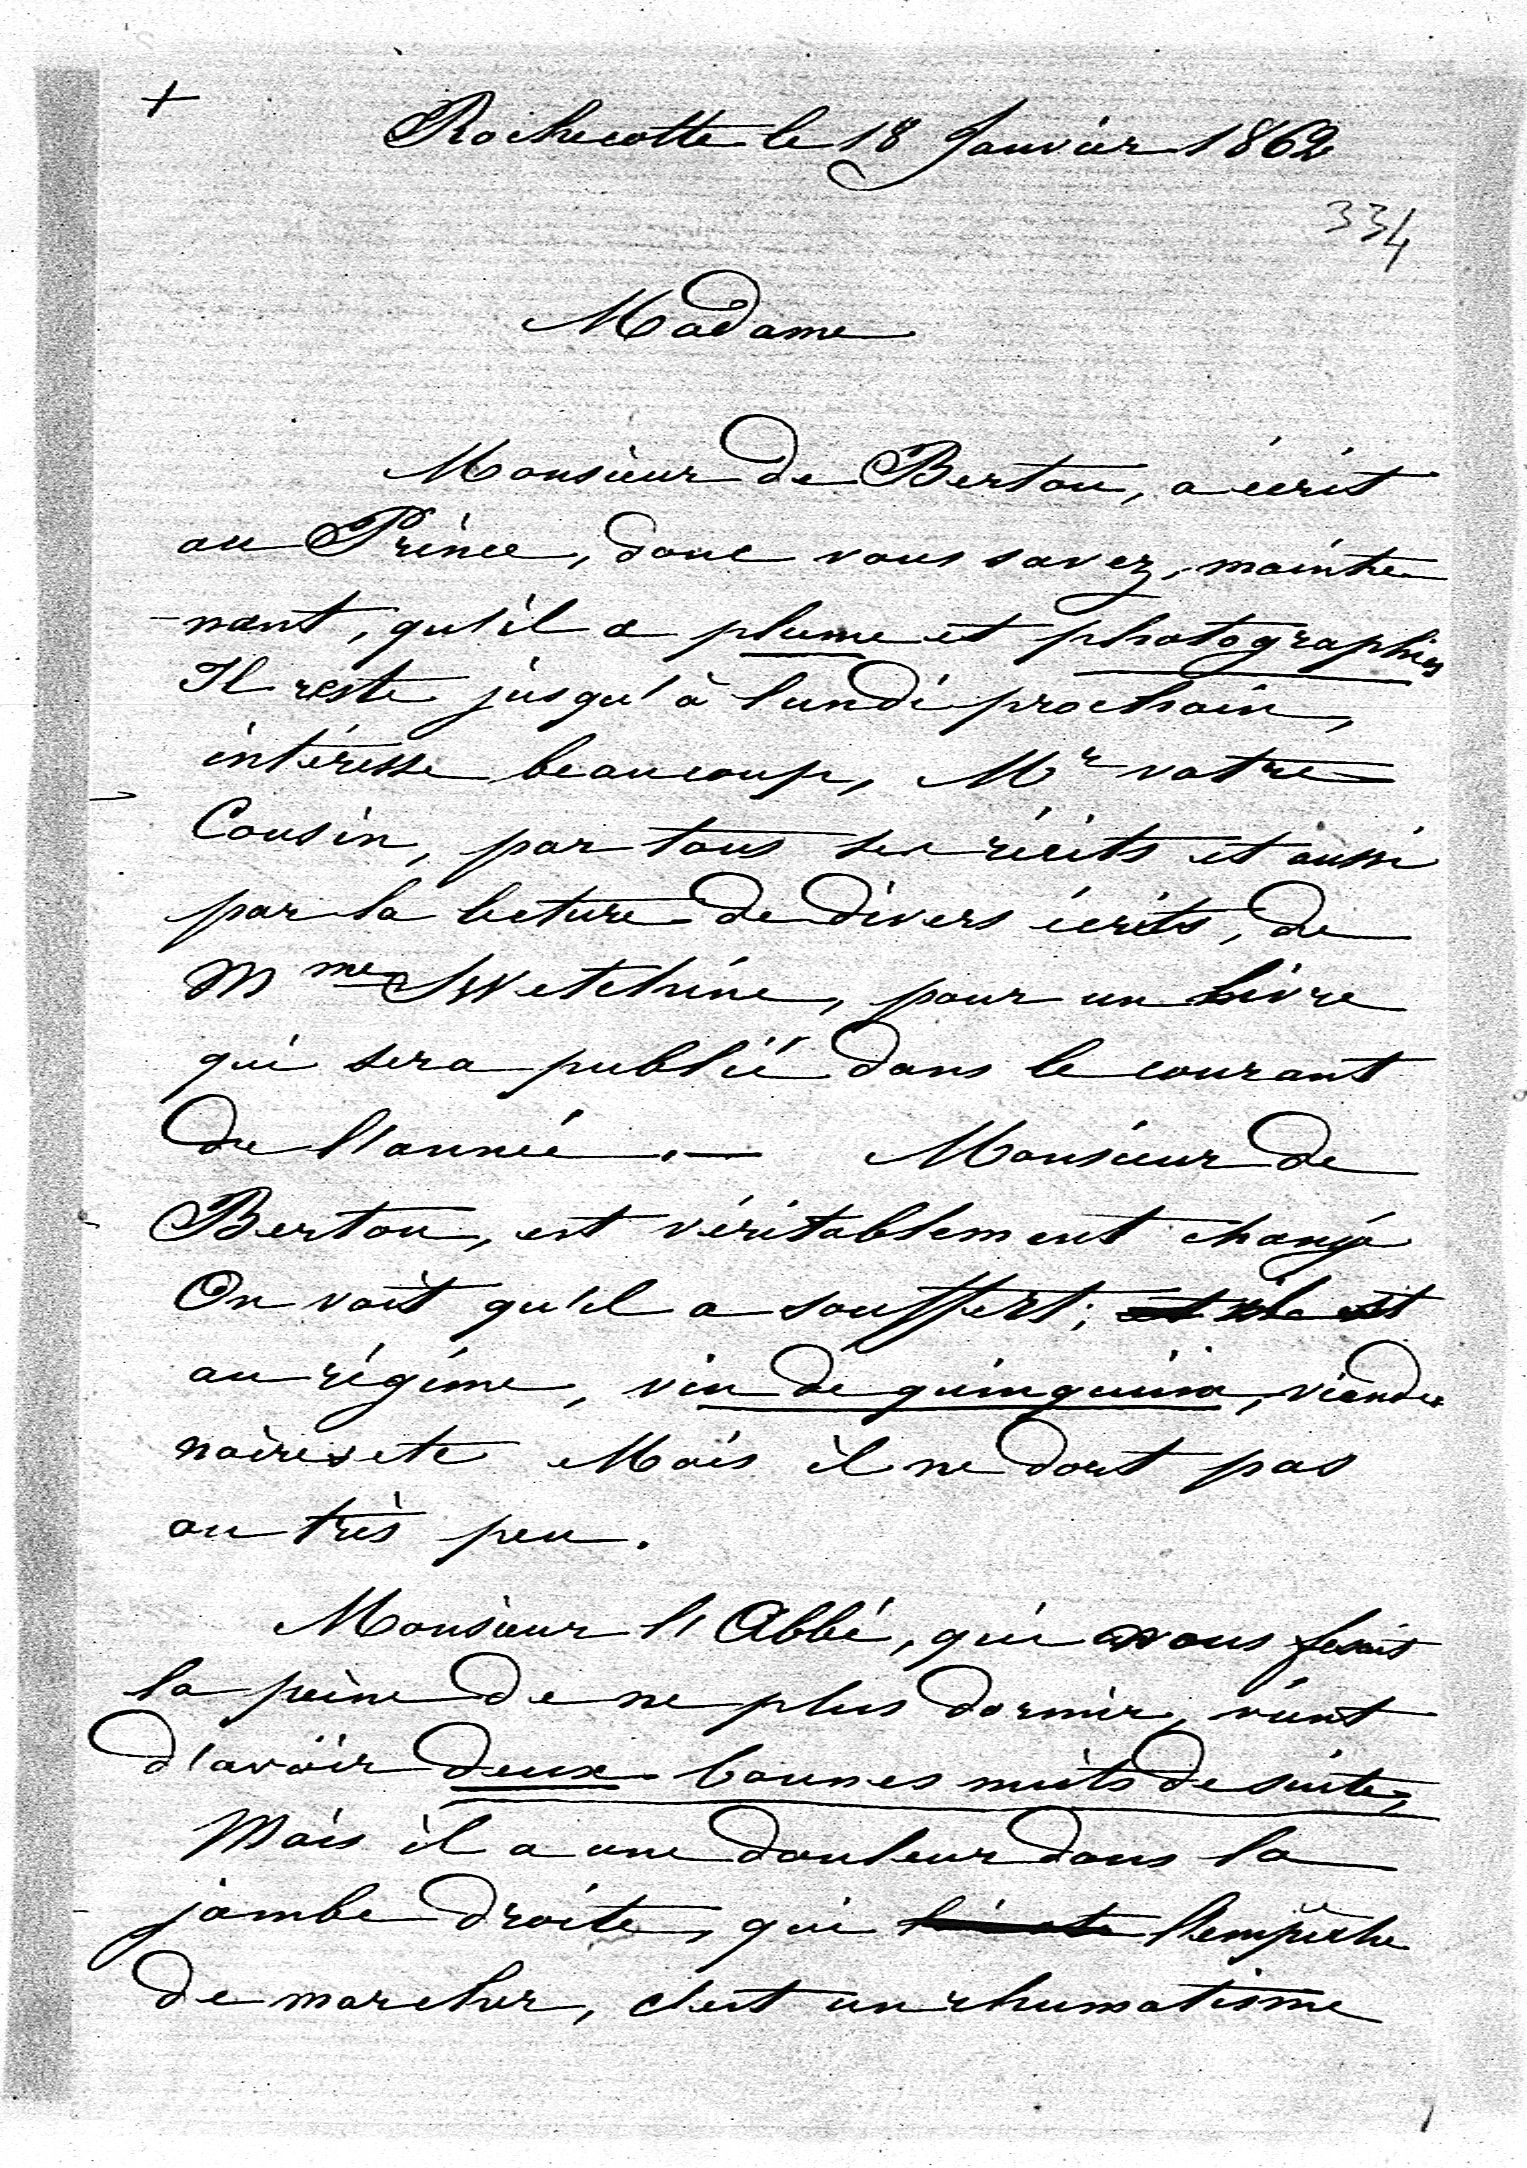 +
Rochecotte le 18 Janvier 1862
334
Madame
Monsieur de Bertou, a écrit
au Prince, donc vous savez, mainte
-nant, qu'il a plume et photographies
Il reste jusqu'à lundi prochain,
intéresse beaucoup, Mr votre
Cousin, par tous ses récits et aussi
par la lecture de divers écrits, de
Mme Swetchine, pour un livre
qui sera publié dans le courant
de l'année. — Monsieur de
Bertou, est véritablement changé
On voit qu'il a souffert; et il est
au régime, vin de quinquina, viandes
noires etc Mais il ne dort pas
ou très peu.
Monsieur l'Abbé, qui vous fesait
la peine de ne plus dormir, vient
d'avoir deux bonnes nuits de suite,
Mais il a une douleur dans la
jambe droite, qui l'empêche
de marcher, c'est un rhumatisme